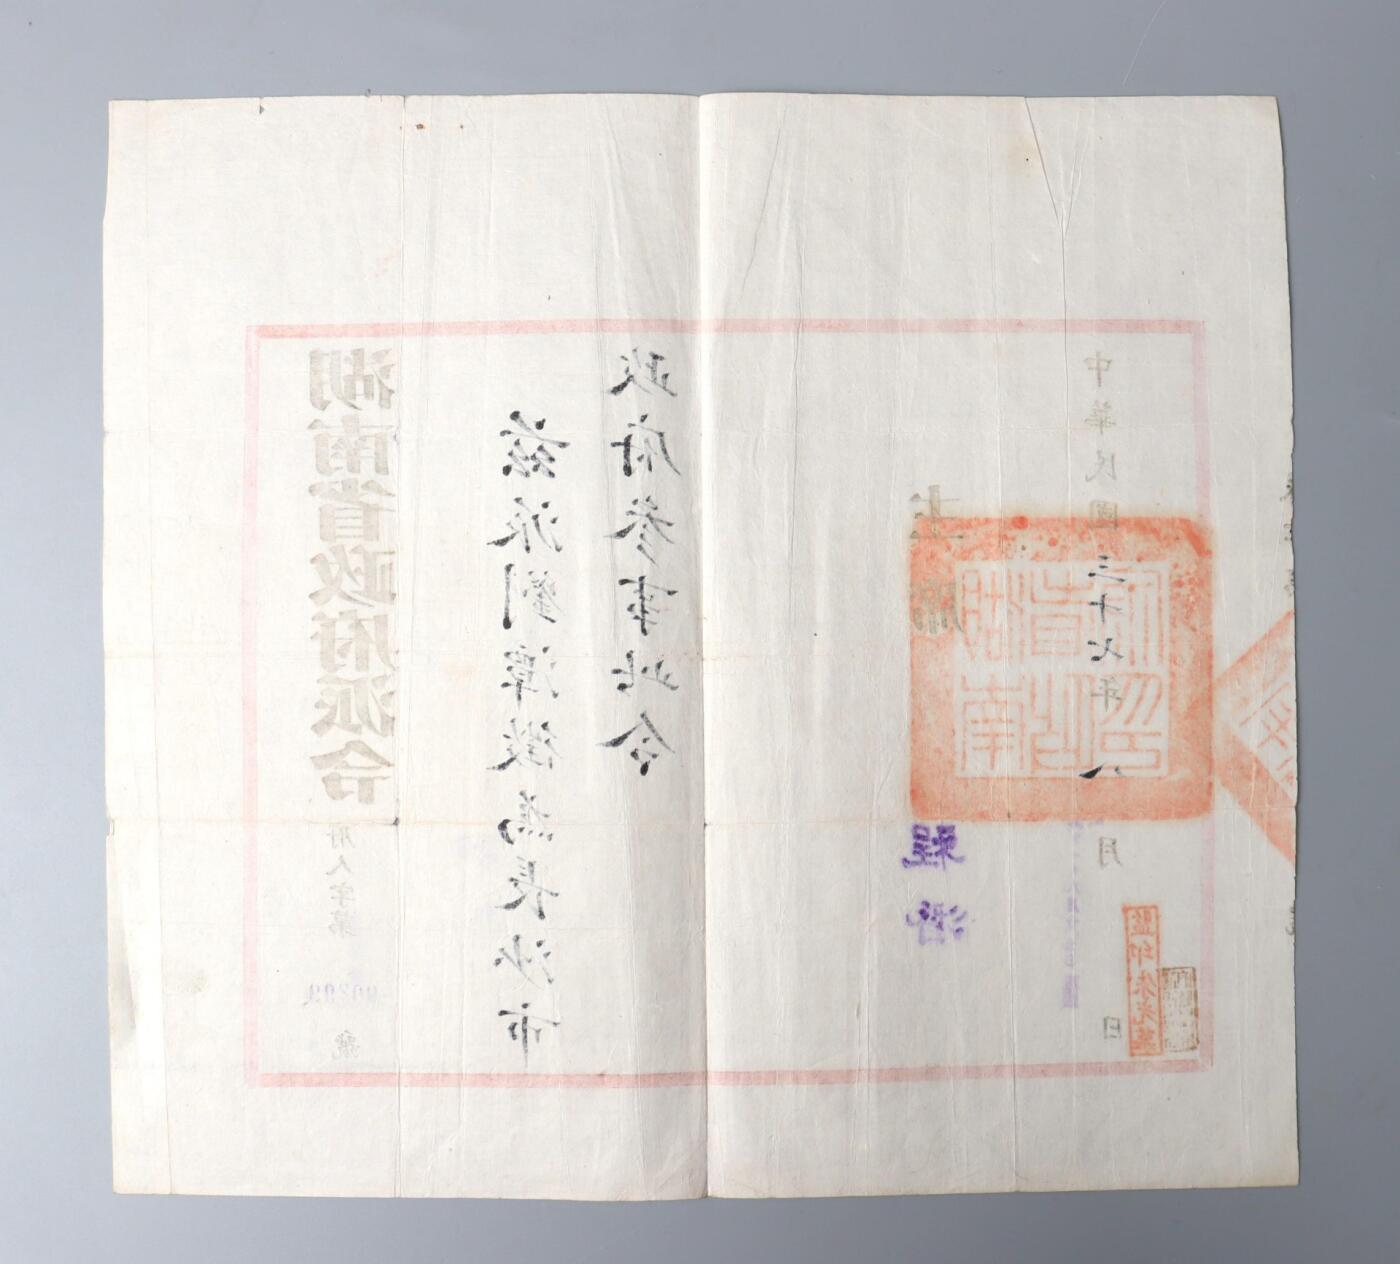 湖南省政府派令
府人字第
號
茲派劉潭澂為長沙市
政府參事此令
主席
程潛
湖南省政府印
中華民國三十七年八月
日
監印朱